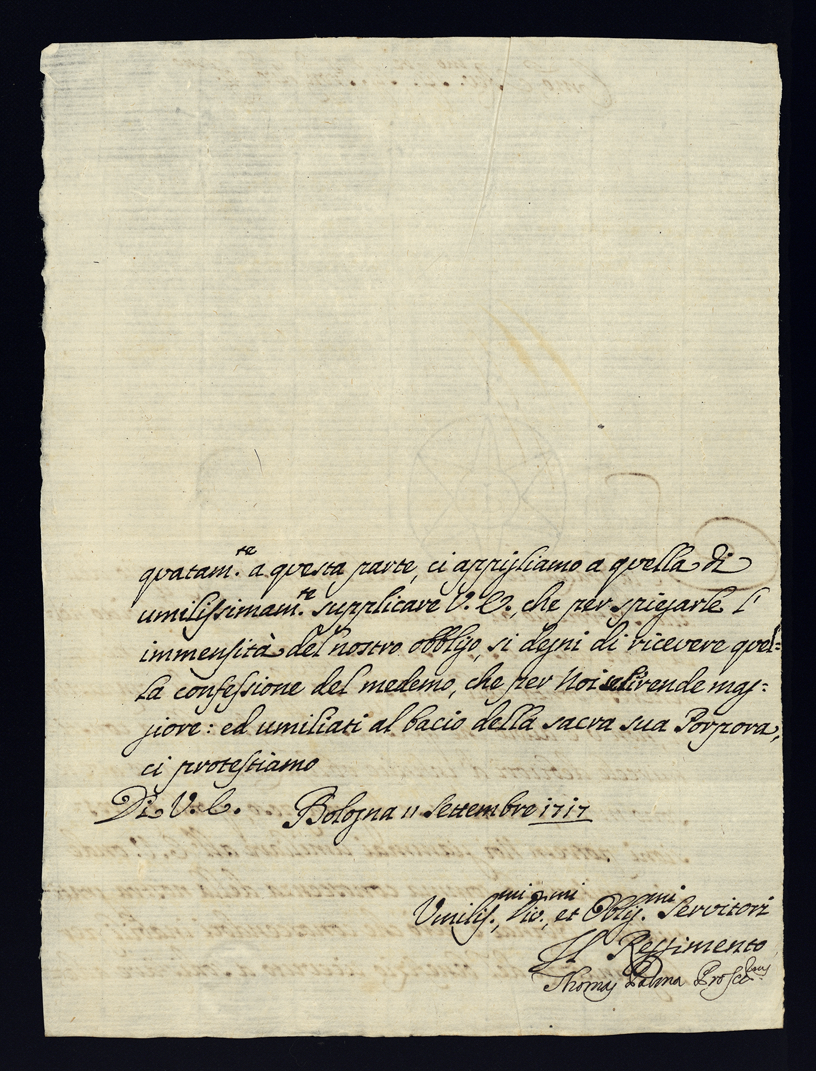 quatam.te a questa parte, ci appigliamo a quella di
umilissimam.te supplicare V. E., che per spiegarle l'
immensità del nostro obbligo, si degni di ricevere quel=
la confessione del medemo, che per Noi si rende mag=
giore: ed umiliati al bacio della sacra sua Porpora,
ci protestiamo
Di V. E. Bologna 11 Settembre 1717
Umiliss.mi, div.mi, et Oblig.mi Servitori
Il Reggimento
Thomas